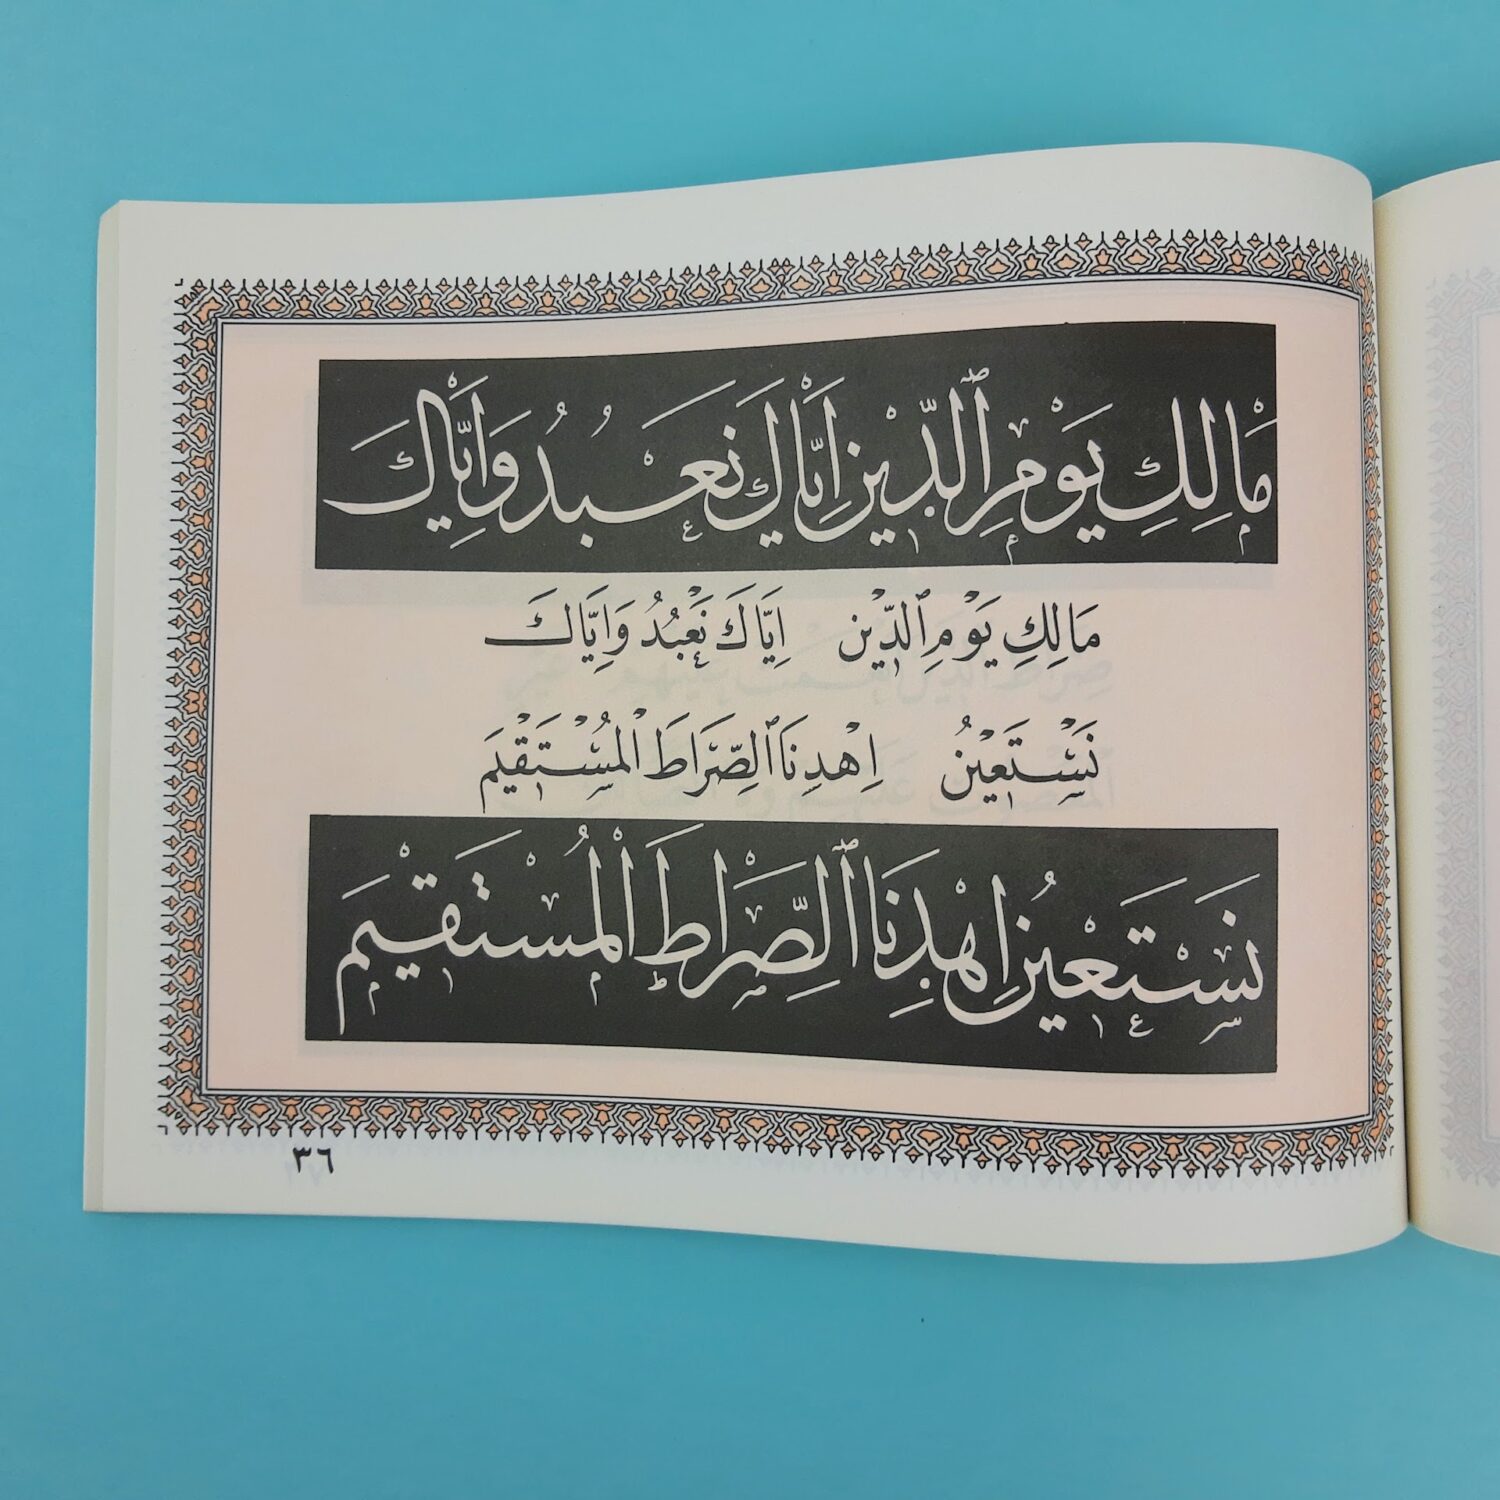 مَالِكِ يَوْمِ ٱلدِّينِ اِيَّاكَ نَعْبُدُ وَاِيَّاكَ
مَالِكِ يَوْمِ ٱلدِّيْنِ اِيَّاكَ نَعْبُدُ وَاِيَّاكَ
نَسْتَعِيْنُ اِهْدِنَا ٱلصِّرَاطَ الْمُسْتَقِيْمَ
نَسْتَعِيْنُ اِهْدِنَا ٱلصِّرَاطَ الْمُسْتَقِيْمَ
٣٦